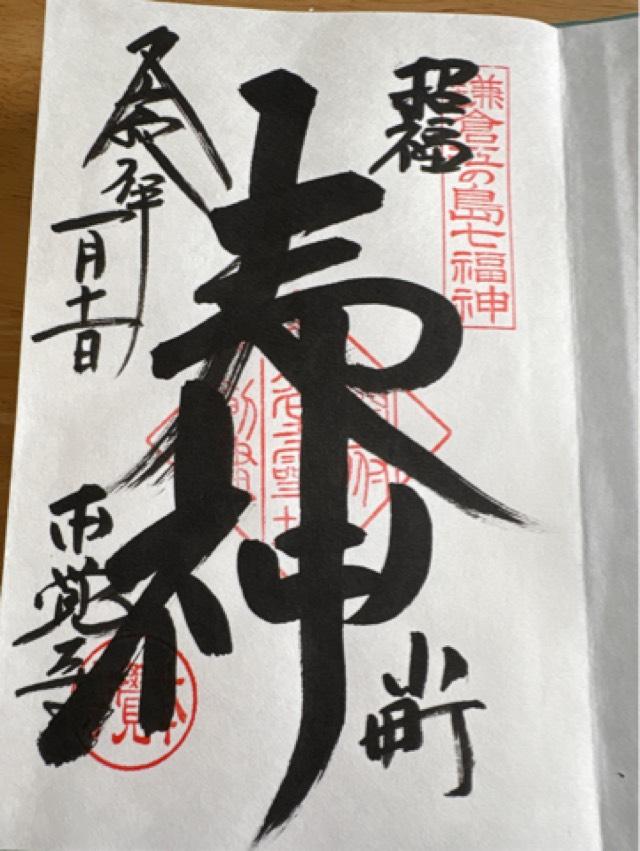 鎌倉江の島七福神
招福
夷神
小町
令和
年
一月十一日
本覚寺